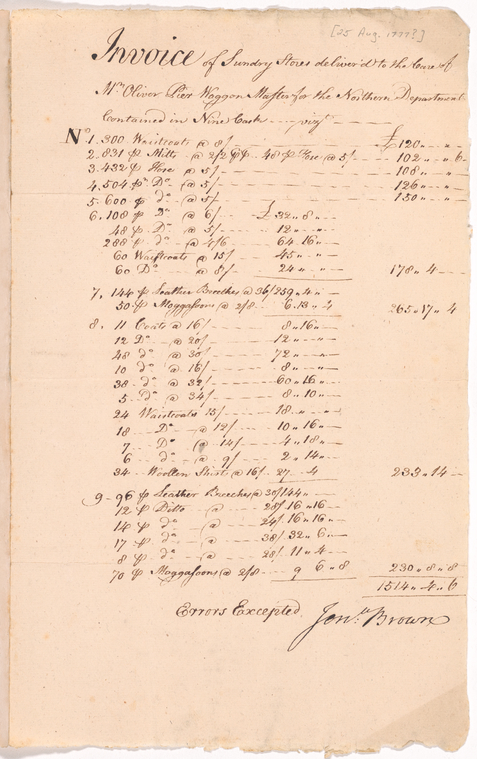 [25 Aug. 1777?]
Invoice of Sundry Stores deliver'd to the Care of
Mr. Oliver Pier Waggon Master for the Northern Department
Contained in Nine Casks viz
No. 1. 300 Waistcoats @ 8/ £ 120 " " "
2. 831 p Mitts @ 2/2 p p 48 p Hose @ 5/ 102 " " 6
3. 432 p Hose @ 5/ 108 " "
4. 504 pr Do @ 5/ 126 " "
5. 600 p do @ 5/ 150 " "
6. 108 p Do @ 6/ £ 32 " 8 "
48 p Do @ 5/ 12 " "
288 p do @ 4/6 64 16 "
60 Waistcoats @ 15/ 45 " "
60 Do @ 8/ 24 " " 178 " 4
7. 144 p Leather Breeches @ 36/ 259 " 4 "
50 p Moggasoons @ 2/8 6 13 " 4 265 " 17 " 4
8. 11 Coats @ 16/ 8 " 16 "
12 Do @ 20/ 12 " "
48 do @ 30/ 72 " "
10 do @ 16/ 8 " "
38 do @ 32/ 60 " 16 "
5 do @ 34/ 8 " 10 "
24 Waistcoats 15/ 18 " "
18 Do @ 12/ 10 " 16
7 Do @ 14/ 4 " 18 "
6 do @ 9/ 2 " 14
34 Woollen Shirts @ 16/ 27 " 4 233 " 14
9 - 96 p Leather Breeches @ 30/ 144 "
12 p Ditto @ 28/ 16 " 16
14 p do @ 24/ 16 " 16 "
17 p do @ 38/ 32 " 6
8 p do @ 28/ 11 " 4
70 p Moggasoons @ 2/8 9 6 " 8 230 " 8 " 8
1514 " 4 " 6
Errors Excepted
Jona. Brown